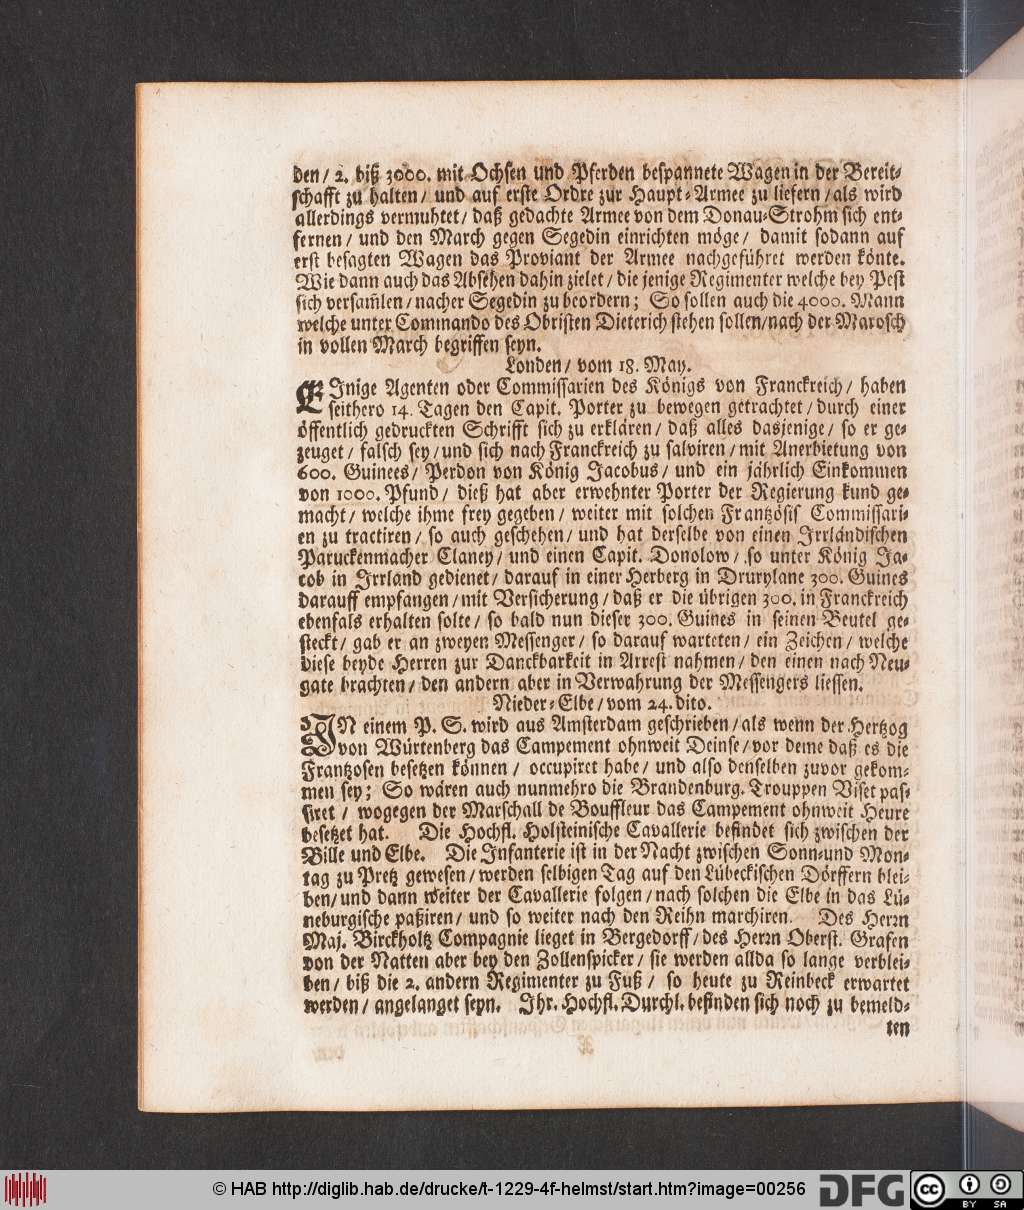 den / 2. biß 3000. mit Ochsen und Pferden bespannete Wagen in der Bereit-
schafft zu halten / und auf erste Ordre zur Haupt-Armee zu liefern / als wird
allerdings vermuhtet / daß gedachte Armee von dem Donau-Strohm sich ent-
fernen / und den March gegen Segedin einrichten möge / damit sodann auf
erst besagten Wagen das Proviant der Armee nachgeführet werden könte.
Wie dann auch das Absehen dahin zielet / die jenige Regimenter welche bey Pest
sich versam̃len / nacher Segedin zu beordern; So sollen auch die 4000. Mann
welche unter Commando des Obristen Dieterich stehen sollen/nach der Marosch
in vollen March begriffen seyn.
Londen / vom 18. May.
EJnige Agenten oder Commissarien des Königs von Franckreich / haben
seithero 14. Tagen den Capit. Porter zu bewegen getrachtet / durch einer
öffentlich gedruckten Schrifft sich zu erklären / daß alles dasjenige / so er ge-
zeuget / falsch sey / und sich nach Franckreich zu salviren / mit Anerbietung von
600. Guinees / Perdon von König Jacobus / und ein jährlich Einkommen
von 1000. Pfund / dieß hat aber erwehnter Porter der Regierung kund ge-
macht / welche ihme frey gegeben / weiter mit solchen Frantzösis Commissari-
en zu tractiren / so auch geschehen / und hat derselbe von einen Irrländischen
Paruckenmacher Claney / und einen Capit. Donolow / so unter König Ja-
cob in Irrland gedienet / darauf in einer Herberg in Drurylane 300. Guines
darauff empfangen / mit Versicherung / daß er die übrigen 300. in Franckreich
ebenfals erhalten solte / so bald nun dieser 300. Guines in seinen Beutel ge-
steckt / gab er an zweyen Messenger / so darauf warteten / ein Zeichen / welche
diese beyde Herren zur Danckbarkeit in Arrest nahmen / den einen nach Neu-
gate brachten / den andern aber in Verwahrung der Messengers liessen.
Nieder-Elbe / vom 24. dito.
IN einem P. S. wird aus Amsterdam geschrieben / als wenn der Hertzog
von Würtenberg das Campement ohnweit Deinse / vor deme daß es die
Frantzosen besetzen können / occupiret habe / und also denselben zuvor gekom-
men sey; So wären auch nunmehro die Brandenburg. Trouppen Viset pas-
siret / wogegen der Marschall de Bouffleur das Campement ohnweit Heure
besetzet hat. Die Hochfl. Holsteinische Cavallerie befindet sich zwischen der
Bille und Elbe. Die Infanterie ist in der Nacht zwischen Sonn-und Mon-
tag zu Pretz gewesen / werden selbigen Tag auf den Lübeckischen Dörffern blei-
ben / und dann weiter der Cavallerie folgen / nach solchen die Elbe in das Lü-
neburgische paßiren / und so weiter nach den Reihn marchiren. Des Herrn
Maj. Birckholtz Compagnie lieget in Bergedorff / des Herrn Oberst. Grafen
von der Natten aber bey den Zollenspicker / sie werden allda so lange verblei-
ben / biß die 2. andern Regimenter zu Fuß / so heute zu Reinbeck erwartet
werden / angelanget seyn. Ihr. Hochfl. Durchl. befinden sich noch zu bemeld-
ten
© HAB http://diglib.hab.de/drucke/t-1229-4f-helmst/start.htm?image=00256
DFG
cc
BY SA